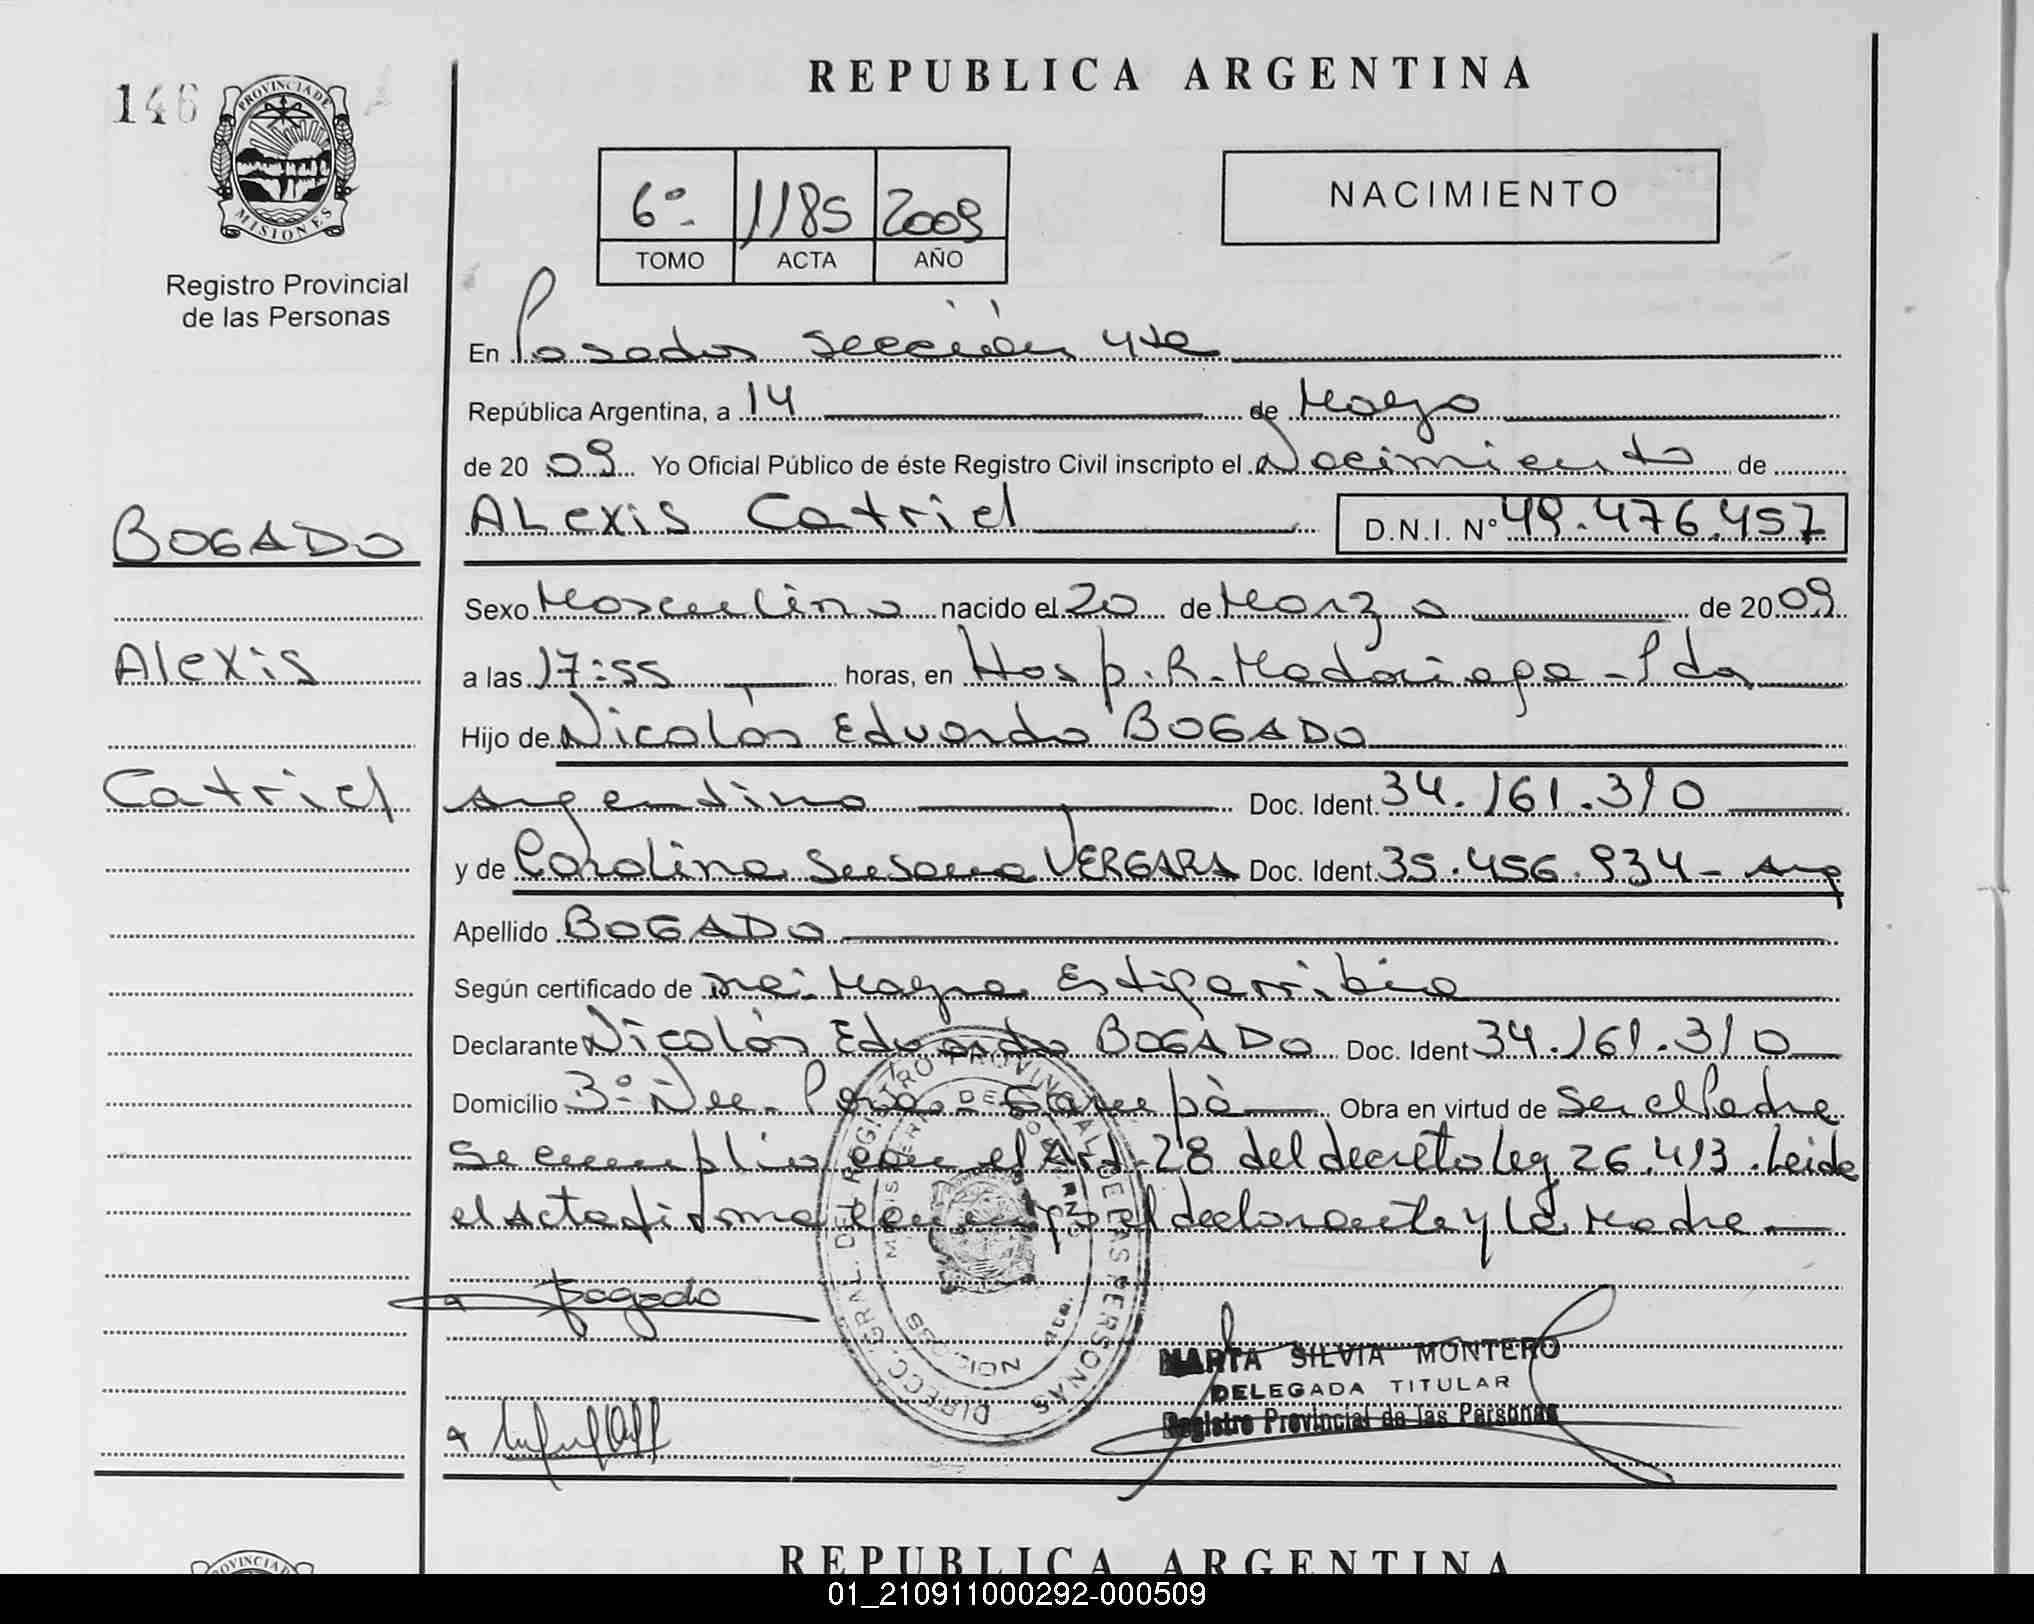 REPUBLICA ARGENTINA
146
PROVINCIA DE
MISIONES
Registro Provincial
de las Personas
6º
1185
2009
TOMO
ACTA
AÑO
NACIMIENTO
En Posadas sección 4ta
República Argentina, a 14 de Mayo
de 20 09 Yo Oficial Público de éste Registro Civil inscripto el Nacimiento de
BOGADO
Alexis Catriel
D.N.I. Nº 49.476.457
Sexo Masculino nacido el 20 de Marzo de 20 09
Alexis
a las 17:55 horas, en Hosp. R. Madariaga - Pdas
Hijo de Nicolás Eduardo BOGADO
Catriel
Argentino Doc. Ident. 34.161.310
y de Carolina Susana VERGARA Doc. Ident. 35.456.934 - Arg
Apellido BOGADO
Según certificado de Mayra Estigarribia
Declarante Nicolás Eduardo BOGADO Doc. Ident 34.161.310
Domicilio Garupá Obra en virtud de Ser el Padre
Se cumplió con el Art. 28 del decreto Ley 26.413. Leida
el Acta firman el declarante y la Madre
Bogado
DIRECC. GRAL. DEL REGISTRO PROVINCIAL DE LAS PERSONAS
MARTA SILVIA MONTERO
DELEGADA TITULAR
Registro Provincial de las Personas
REPUBLICA ARGENTINA
01_210911000292-000509